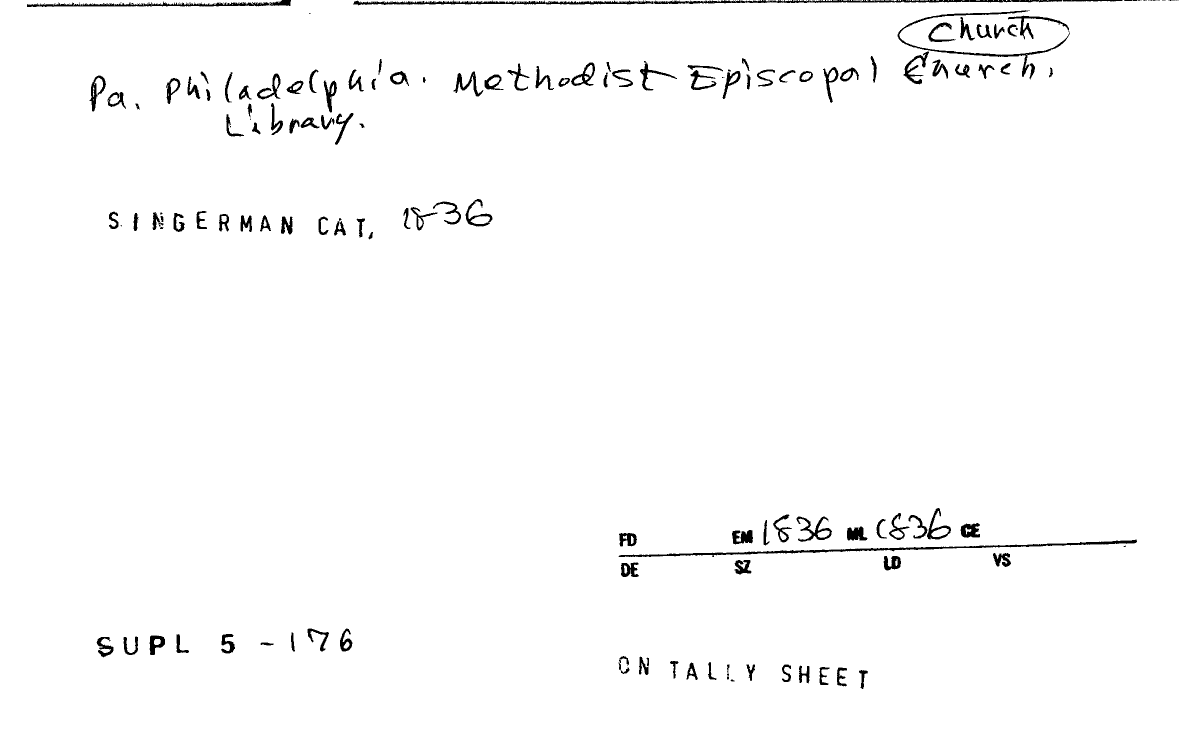 Church
Pa. Philadelphia. Methodist Episcopal Church.
Library.
SINGERMAN CAT. 1836
FD EM 1836 ML 1836 CE
DE SZ LD VS
SUPL 5 - 176
ON TALLY SHEET